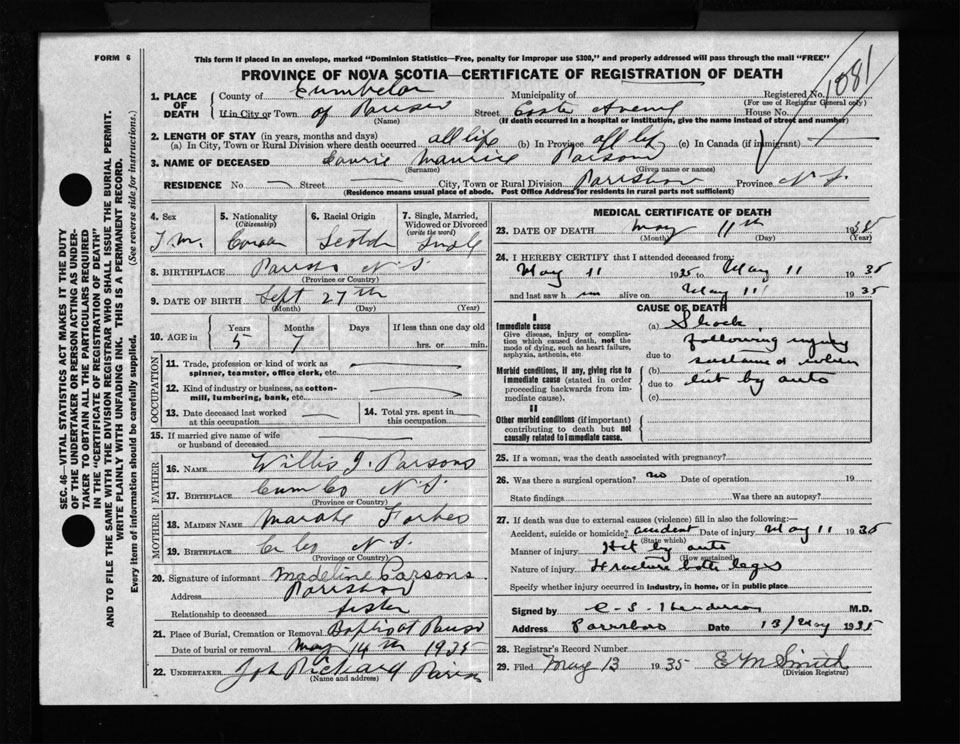 FORM 6
This form if placed in an envelope, marked "Dominion Statistics—Free, penalty for improper use $300," and properly addressed will pass through the mail "FREE"
1081
PROVINCE OF NOVA SCOTIA—CERTIFICATE OF REGISTRATION OF DEATH
1. PLACE OF DEATH
County of Municipality of Registered No.
(For use of Registrar General only)
If in City or Town of (Name) Street House No.
(If death occurred in a hospital or institution, give the name instead of street and number)
2. LENGTH OF STAY (in years, months and days)
(a) In City, Town or Rural Division where death occurred all life (b) In Province all life (c) In Canada (if immigrant)
3. NAME OF DECEASED Laurie Maurice Parsons
(Surname) (Given name or names)
RESIDENCE No. — Street — City, Town or Rural Division Parrsboro Province N. S.
(Residence means usual place of abode. Post Office Address for residents in rural parts not sufficient)
4. Sex
5. Nationality (Citizenship)
6. Racial Origin Scotch
7. Single, Married, Widowed or Divorced (write the word) Single
8. BIRTHPLACE N S
(Province or Country)
9. DATE OF BIRTH Sept 27th
(Month) (Day) (Year)
10. AGE in Years 5 Months 7 Days If less than one day old hrs. or min.
OCCUPATION
11. Trade, profession or kind of work as spinner, teamster, office clerk, etc.
12. Kind of industry or business, as cotton-mill, lumbering, bank, etc.
13. Date deceased last worked at this occupation
14. Total yrs. spent in this occupation
15. If married give name of wife or husband of deceased
FATHER
16. NAME Willis J. Parsons
17. BIRTHPLACE Cum Co N. S.
(Province or Country)
MOTHER
18. MAIDEN NAME Forbes
19. BIRTHPLACE N S
(Province or Country)
20. Signature of informant Madeline Parsons
Address Parrsboro
Relationship to deceased sister
21. Place of Burial, Cremation or Removal Baptist
Date of burial or removal May 14th 1935
22. UNDERTAKER
(Name and address)
MEDICAL CERTIFICATE OF DEATH
23. DATE OF DEATH May 11th 1935
(Month) (Day) (Year)
24. I HEREBY CERTIFY that I attended deceased from:
May 11 1935 to May 11 1935
and last saw him alive on May 11 1935
CAUSE OF DEATH
I
Immediate cause
Give disease, injury or complication which caused death, not the mode of dying, such as heart failure, asphyxia, asthenia, etc
Morbid conditions, if any, giving rise to immediate cause (stated in order proceeding backwards from immediate cause).
II
Other morbid conditions (if important) contributing to death but not causally related to immediate cause.
(a) Shock,
following injury
due to
(b) sustained when
due to hit by auto
(c)
25. If a woman, was the death associated with pregnancy?
26. Was there a surgical operation? no Date of operation 19
State findings Was there an autopsy?
27. If death was due to external causes (violence) fill in also the following:—
Accident, suicide or homicide? accident Date of injury May 11 1935
(State which)
Manner of injury Hit by auto
(How sustained)
Nature of injury Fracture both legs
Specify whether injury occurred in industry, in home, or in public place
Signed by M.D.
Address Parrsboro Date 13/May 1935
28. Registrar's Record Number
29. Filed May 13 1935 E M Smith
(Division Registrar)
SEC. 46—VITAL STATISTICS ACT MAKES IT THE DUTY
OF THE UNDERTAKER OR PERSON ACTING AS UNDER-
TAKER TO OBTAIN ALL THE PARTICULARS REQUIRED
IN THE "CERTIFICATE OF REGISTRATION OF DEATH"
AND TO FILE THE SAME WITH THE DIVISION REGISTRAR WHO SHALL ISSUE THE BURIAL PERMIT.
WRITE PLAINLY WITH UNFADING INK. THIS IS A PERMANENT RECORD.
Every item of information should be carefully supplied. (See reverse side for instructions.)